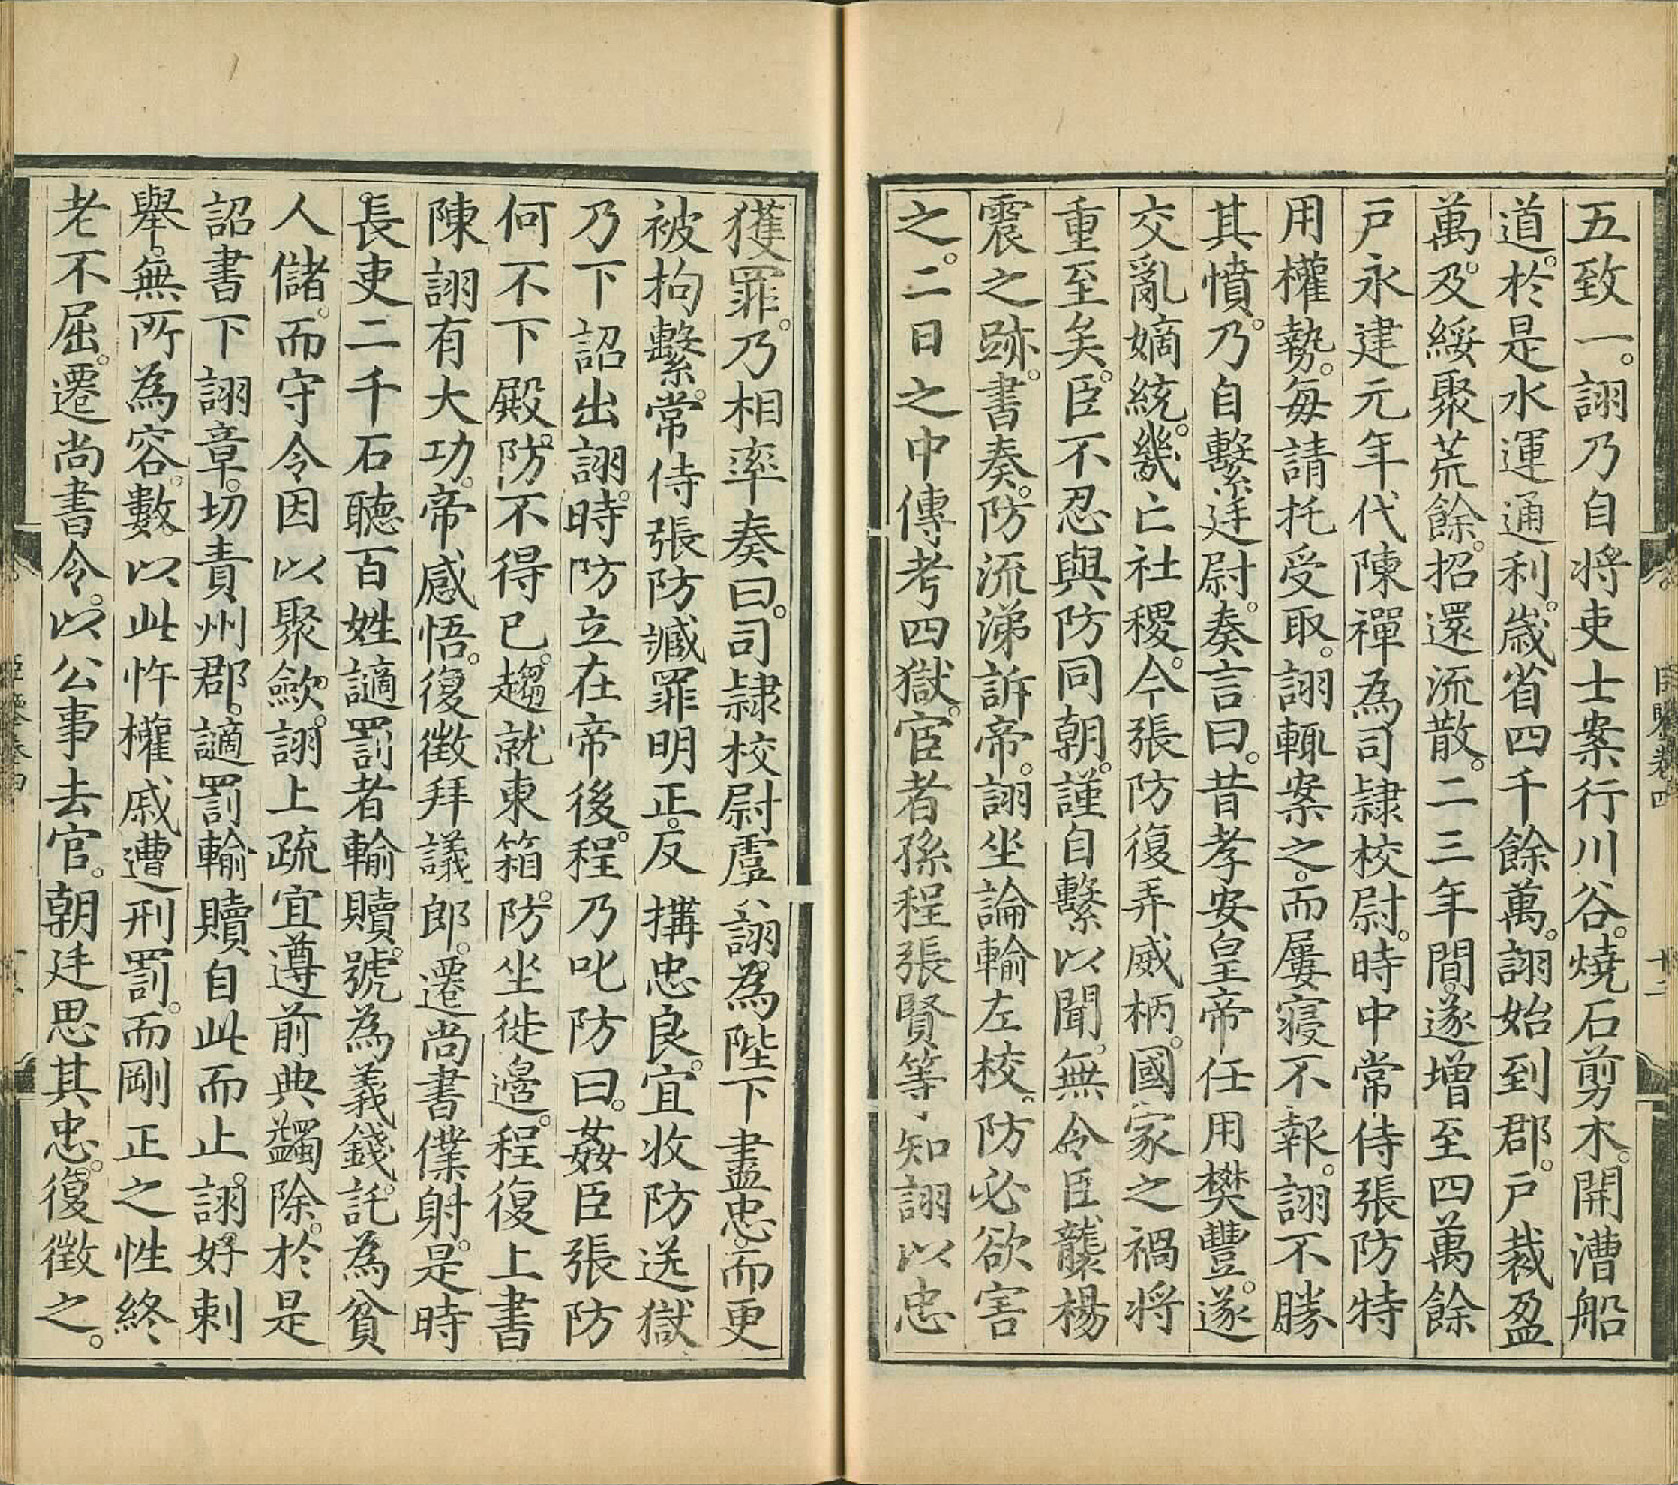 五致一。詡乃自將吏士案行川谷。燒石剪木。開漕船
道。於是水運通利。歲省四千餘萬。詡始到郡。戶裁盈
萬。及綏聚荒餘。招還流散。二三年間。遂增至四萬餘
戶永建元年代陳禪為司隸校尉。時中常侍張防特
用權勢。每請托受取。詡輒案之。而屢寢不報。詡不勝
其憤。乃自繫廷尉。奏言曰。昔孝安皇帝任用樊豐。遂
交亂嫡統。幾亡社稷。今張防復弄威柄。國家之禍將
重至矣。臣不忍與防同朝。謹自繫以聞。無令臣襲楊
震之跡。書奏。防流涕訴帝。詡坐論輸左校。防必欲害
之。二日之中傳考四獄。宦者孫程張賢等知詡以忠
獲罪。乃相率奏曰。司隸校尉虞詡。為陛下盡忠。而更
被拘繫。常侍張防臧罪明正。反搆忠良。宜收防送獄
乃下詔出詡。時防立在帝後。程乃叱防曰。姦臣張防
何不下殿。防不得已。趨就東箱。防坐徙邊。程復上書
陳詡有大功。帝感悟。復徵拜議郎。遷尚書僕射。是時
長吏二千石聽百姓讁罰者輸贖。號為義錢。託為貧
人儲。而守令因以聚斂。詡上疏宜遵前典蠲除。於是
詔書下詡章。切責州郡。讁罰輸贖自此而止。詡好刺
舉。無所為容。數以此忤權戚遭刑罰。而剛正之性終
老不屈。遷尚書令。以公事去官。朝廷思其忠。復徵之。